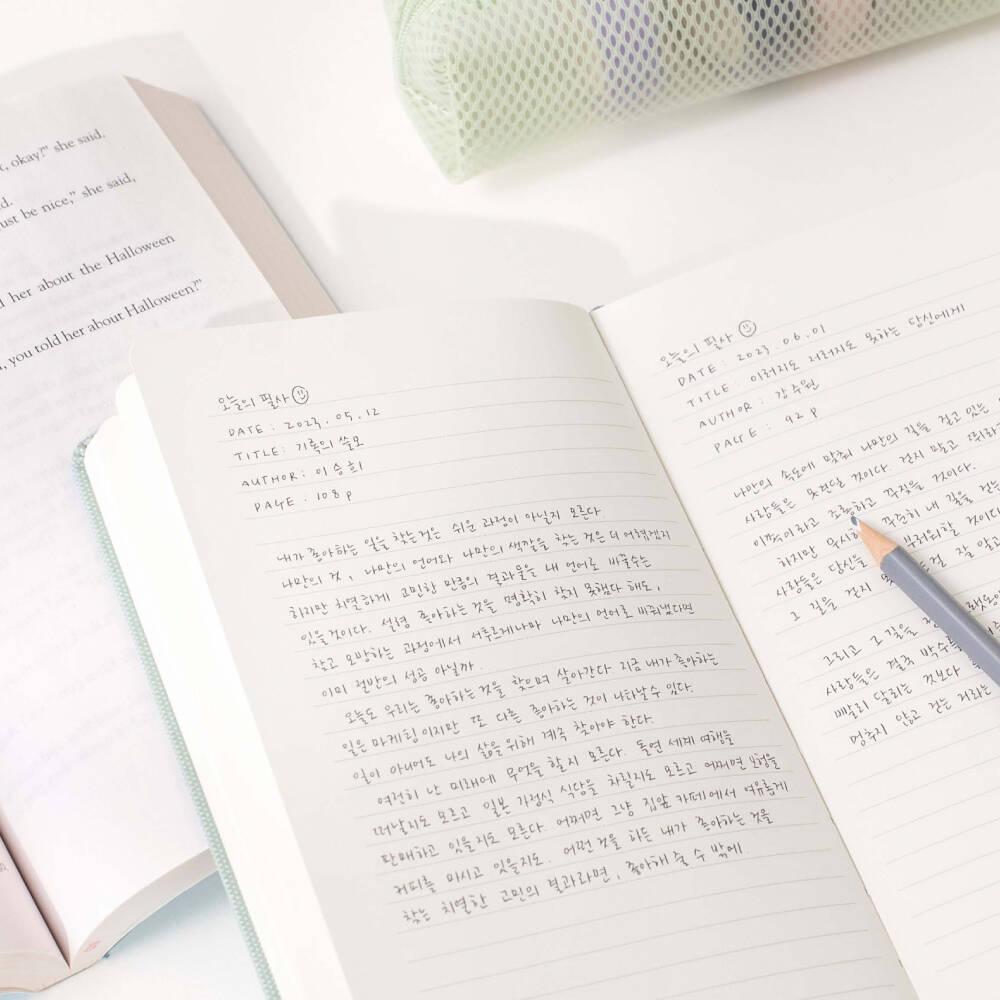 , okay?" she said.
just be nice," she said,
her about the Halloween
, you told her about Halloween?"
오늘의 필사
DATE : 2023. 05. 12
TITLE : 기록의 쓸모
AUTHOR : 이승희
PAGE . 108 p
내가 좋아하는 일을 찾는것은 쉬운 과정이 아닐지 모른다
나만의 것, 나만의 언어와 나만의 색깔을 찾는 것은 더 어렵겠지
하지만 치열하게 고민한 만큼의 결과물을 내 언어로 바꿀수는
있을것이다. 설령 좋아하는 것을 명확히 찾지 못했다 해도,
찾고 모방하는 과정에서 서투르게나마 나만의 언어로 바꿔냈다면
이미 절반의 성공 아닐까.
오늘도 우리는 좋아하는 것을 찾으며 살아간다 지금 내가 좋아하는
일은 마케팅이지만 또 다른 좋아하는 것이 나타날수 있다.
일이 아니어도 나의 삶을 위해 계속 찾아야 한다.
여전히 난 미래에 무엇을 할지 모른다. 돌연 세계 여행을
떠날지도 모르고 일본 가정식 식당을 차릴지도 모르고 어쩌면
판매하고 있을지도 모른다. 어쩌면 그냥 집앞 카페에서 여유롭게
커피를 마시고 있을지도. 어떤것을 하든 내가 좋아하는 것을
찾는 치열한 고민의 결과라면, 좋아해 줄 수 밖에
오늘의 필사
DATE : 2023. 06. 01
TITLE : 이러지도 저러지도 못하는 당신에게
AUTHOR : 강주원
PAGE : 92 p
나만의 속도에 맞춰 나만의 길을 걷고 있는
사람들은 못견딜 것이다. 걷지 말고 뛰라
이쪽이라고 조롱하고 꾸짖을 것이다.
하지만 꾸준히 내 길을 걷는
사람들은 당신을 부러워할 것이다
그 길을 걷지 잘 알고
그리고 그 길을
사람들은 결국 박수를
빨리 달리는 것보다
멈추지 않고 걷는 거라는